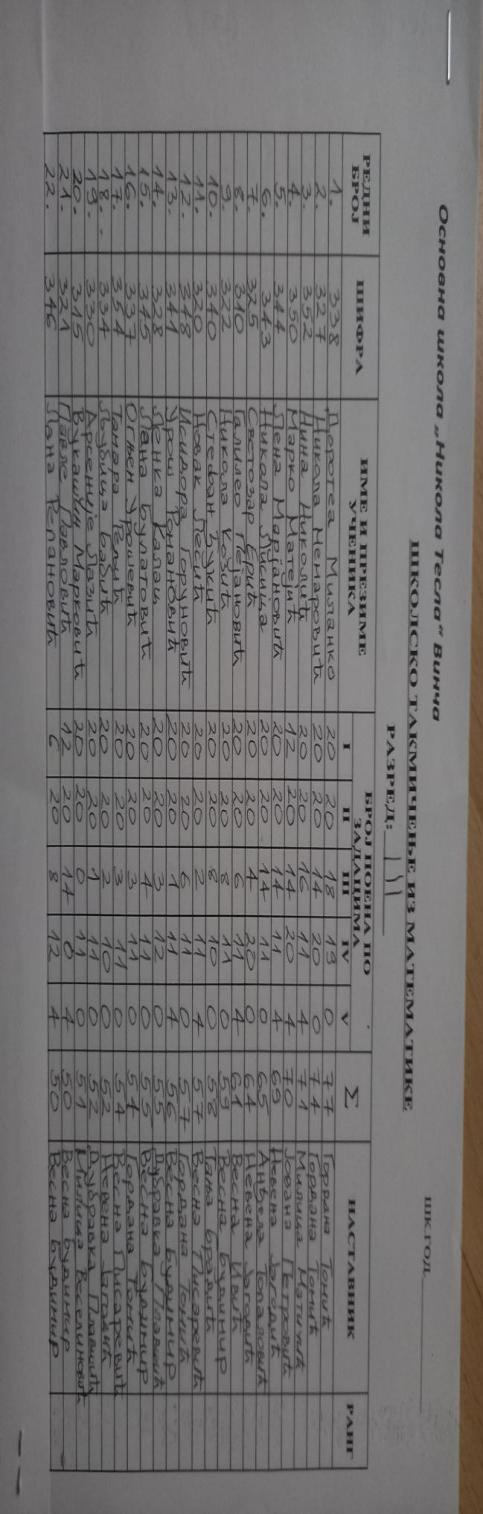 Основна школа „Никола Тесла“ Винча
ШКОЛСКО ТАКМИЧЕЊЕ ИЗ МАТЕМАТИКЕ
ШК.ГОД.
РАЗРЕД: III
РЕДНИ БРОЈ ШИФРА ИМЕ И ПРЕЗИМЕ УЧЕНИКА БРОЈ ПОЕНА ПО ЗАДАЦИМА Σ НАСТАВНИК РАНГ
I II III IV V
1. 338 Доротеа Миланко 20 20 18 19 0 77 Гордана Томић
2. 327 Никола Ненаровић 20 20 14 20 0 74 Гордана Томић
3. 352 Дина Николић 20 20 16 11 4 71 Милица
4. 350 Марко Матејић 12 20 14 20 4 70 Јована Петровић
5. 344 Лена Маријановић 20 20 14 11 4 69 Невена Јагодић
6. 343 Никола Лисица 20 20 14 11 0 65 Анђела Топаловић
7. 325 Светозар 20 20 4 20 0 64 Невена Јагодић
8. 310 Галилео 20 20 6 11 4 61 Весна Ивић
9. 322 Никола Козић 20 20 8 11 0 59 Весна Будимир
10. 340 Стефан Вукић 20 20 8 10 0 58
11. 320 Новак Лесић 20 20 2 11 4 57 Весна Писаревић
12. 348 Исидора Горуновић 20 20 6 11 0 57 Гордана Томић
13. 341 Урош Томановић 20 20 1 11 4 56 Весна Будимир
14. 328 Ленка Калац 20 20 3 12 0 55 Дубравка Плавшић
15. 345 Лана Булатовић 20 20 4 11 0 55 Весна Будимир
16. 337 Огњен Урошевић 20 20 3 11 0 54 Гордана Томић
17. 354 Тамара Релић 20 20 3 11 0 54 Весна Писаревић
18. 334 Љубица Бабић 20 20 2 10 0 52 Невена Јагодић
19. 330 Арсеније Лазић 20 20 1 11 0 52 Дубравка Плавшић
20. 315 Вукашин Марковић 20 20 0 11 0 51 Милица Веселиновић
21. 321 Павле Павловић 12 20 14 0 4 50 Весна Будимир
22. 346 Лана Репановић 6 20 8 12 4 50 Весна Будимир